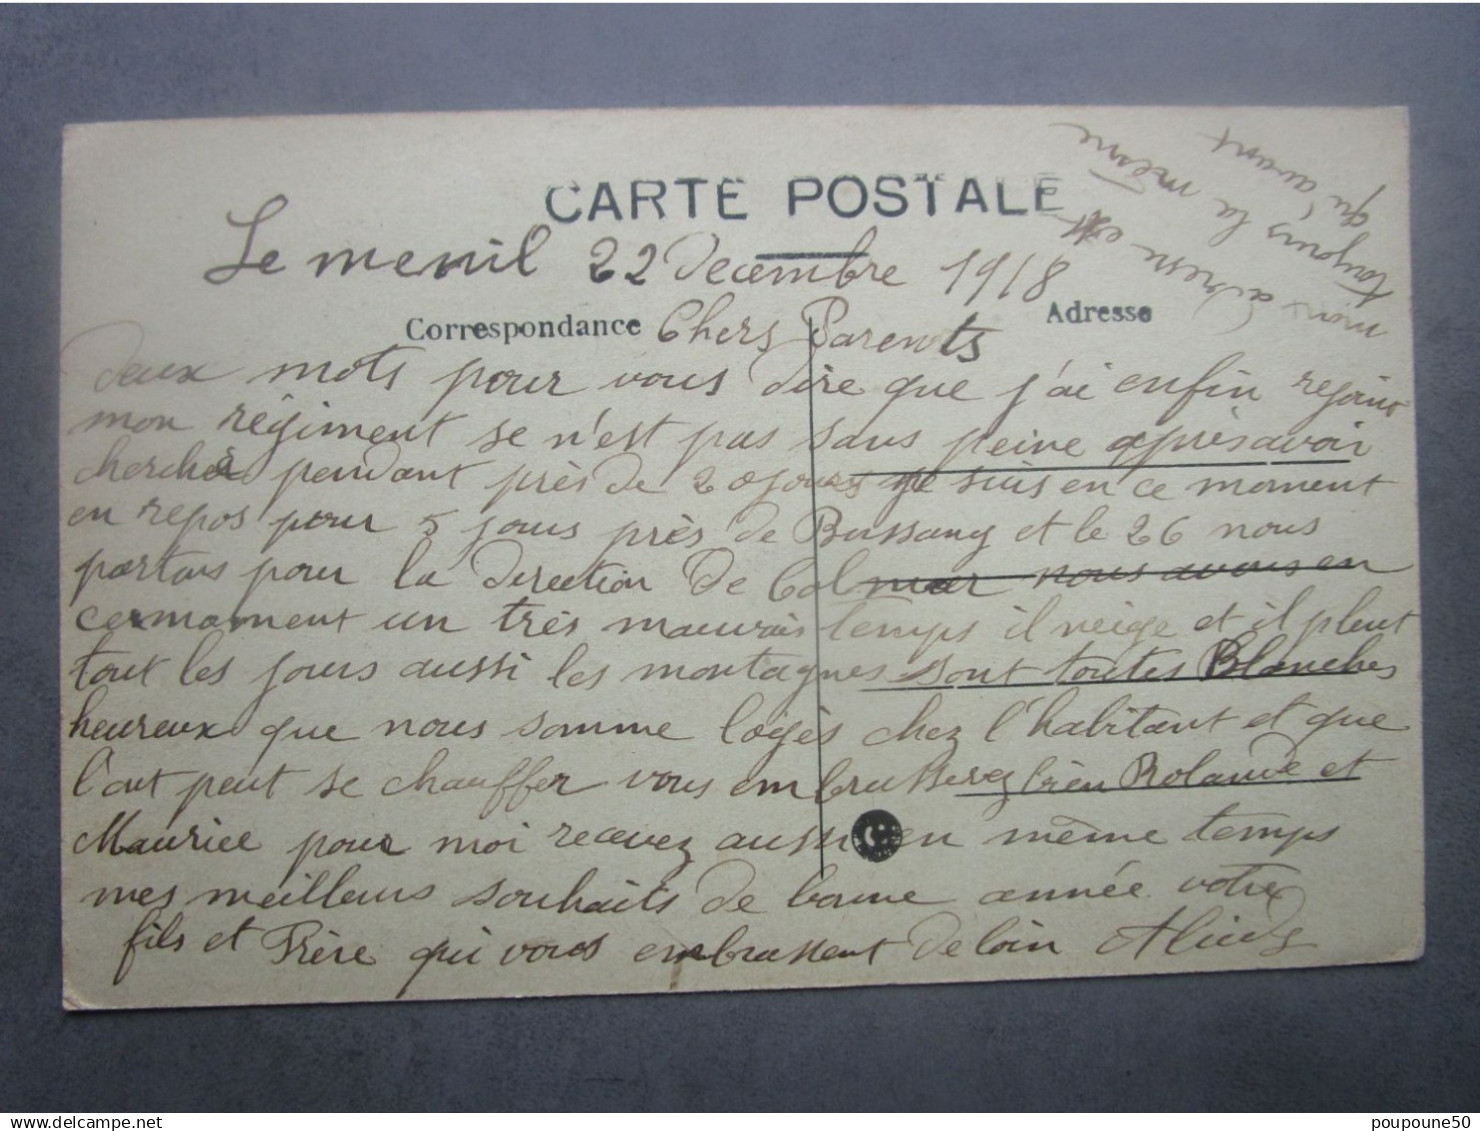 CARTE POSTALE
Le menil 22 Decembre 1918
Correspondance Chers Parents Adresse
deux mots pour vous dire que j'ai enfin rejoint
mon régiment se n'est pas sans peine après avoir
cherché pendant près de 20 jours je suis en ce moment
en repos pour 5 jours près de Bussang et le 26 nous
partons pour la direction de Colmar nous avons en
un très mauvais temps il neige et il pleut
tout les jours aussi les montagnes sont toutes Blanches
heureux que nous somme logés chez l'habitant et que
l'ont peut se chauffer vous embrasserez bien Rolande et
Maurice pour moi recevez aussi en même temps
mes meilleurs souhaits de bonne année votre
fils et Frère qui vous embrassent de loin
mon adresse est
toujours la même
qu'avant
poupoune50